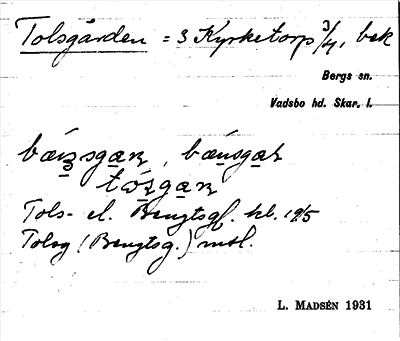 Tolsgården = 3 Kyrketorp 3/4, bek
Bergs sn.
Vadsbo hd. Skar. l.
Tols- el. Bengtsg. kl. 1915
Tolsg (Bengtsg.) mtl.
L. MADSÉN 1931